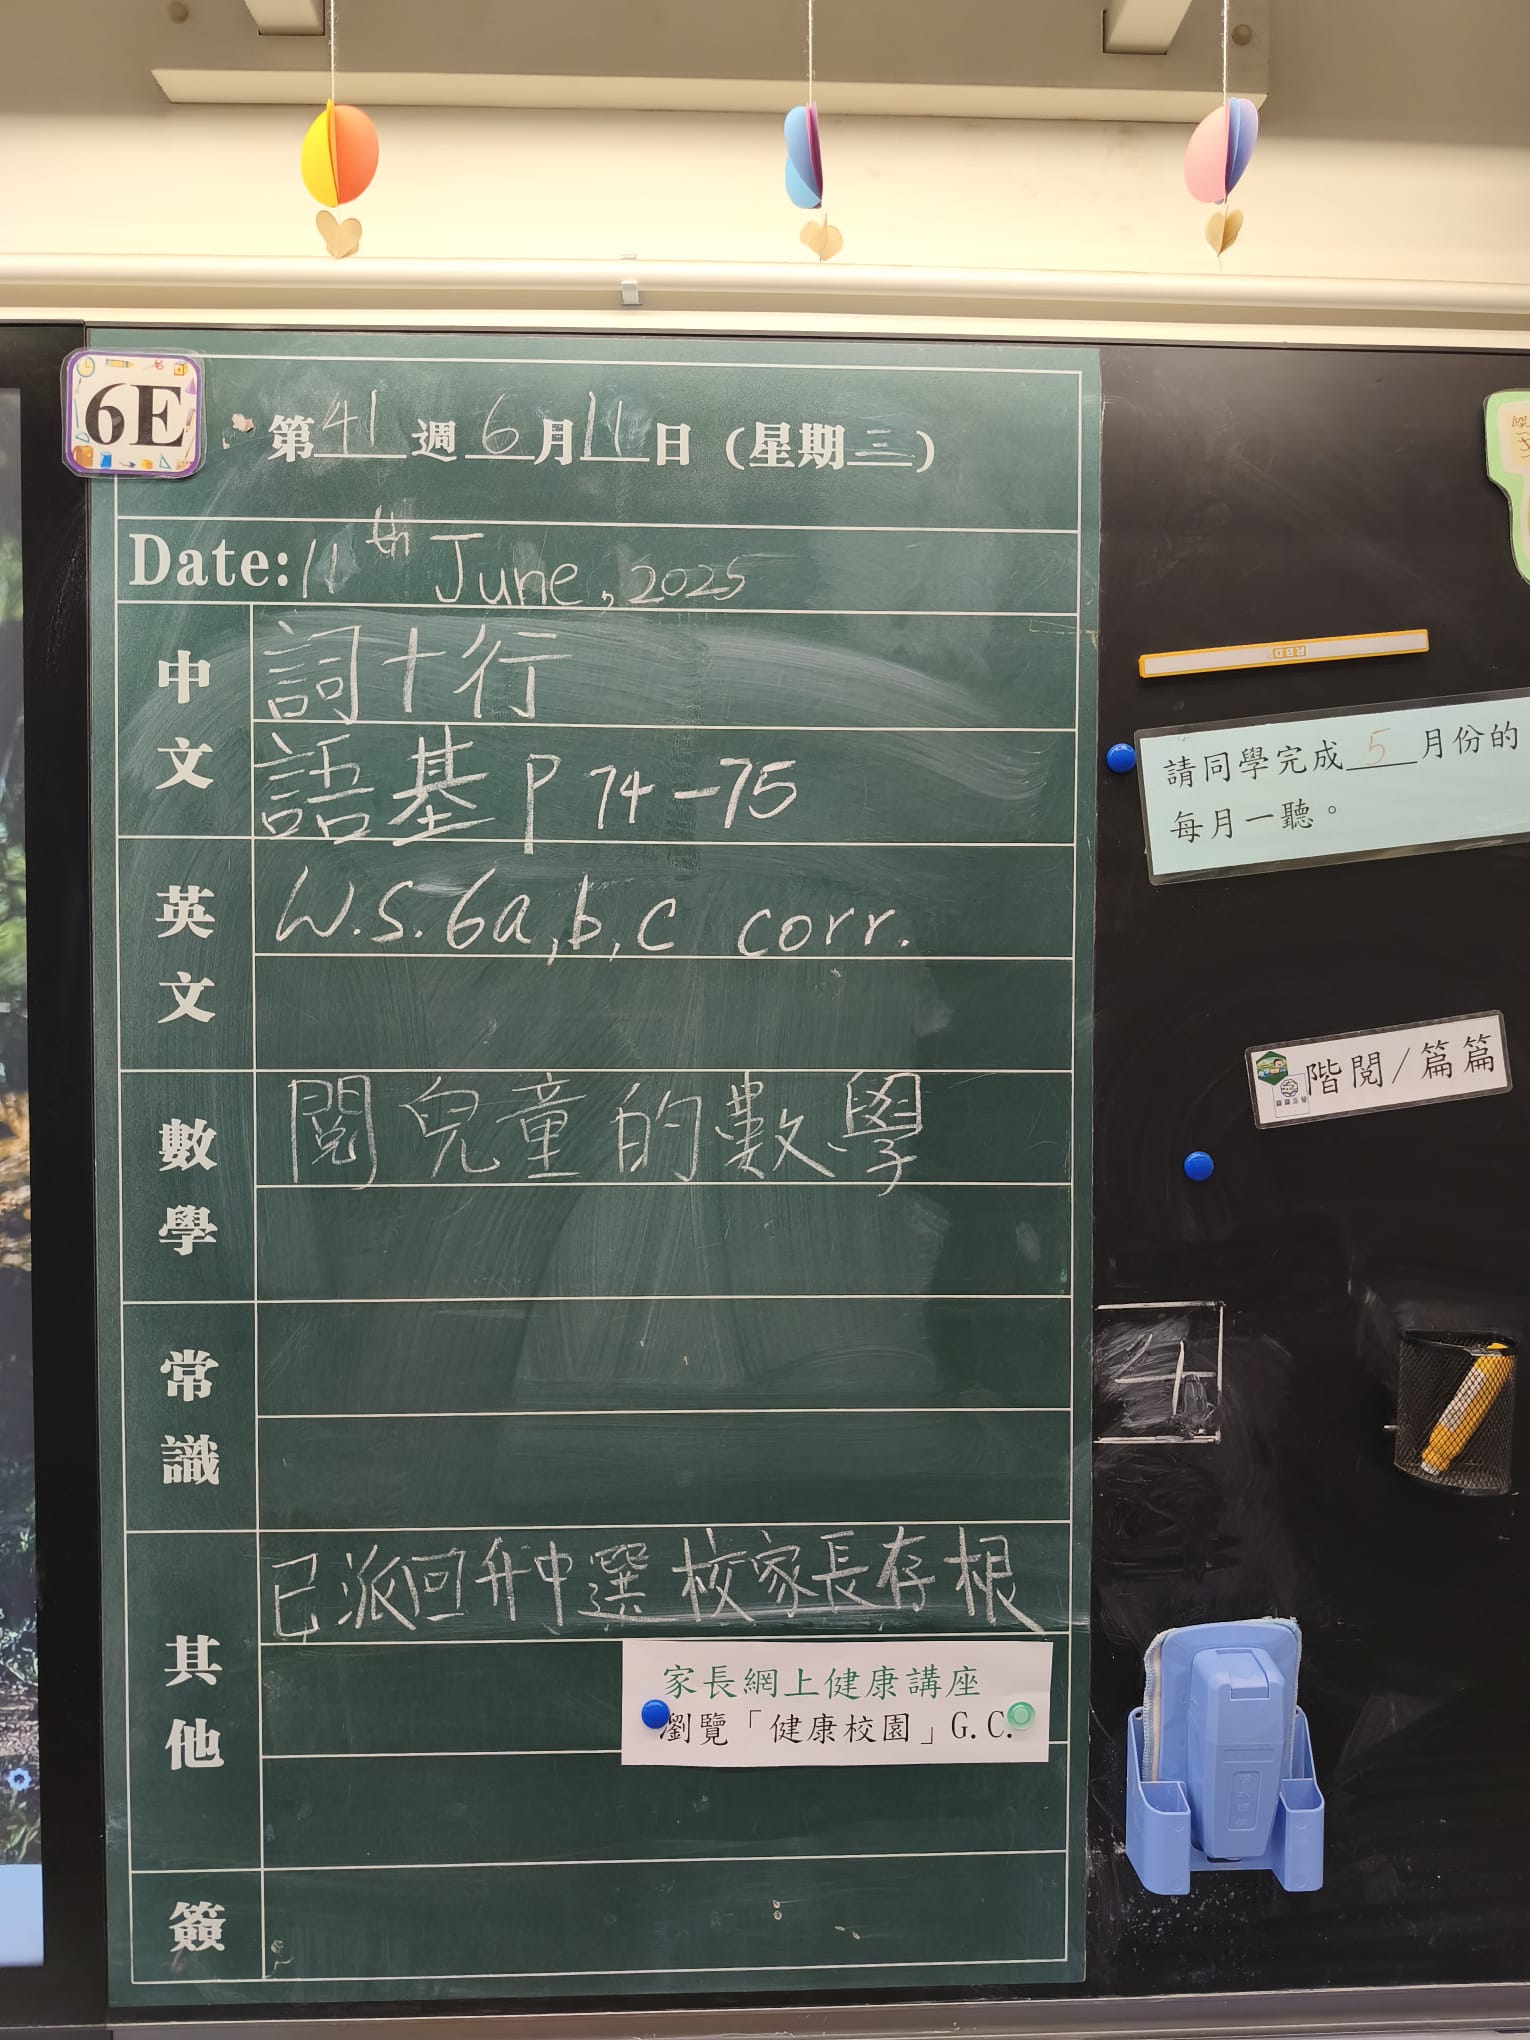 6E
第41週6月11日（星期三）
Date: 11th June, 2025
中文
詞十行
語基P74-75
英文
W.S.6a,b,c corr.
數學
閱兒童的數學
常識
其他
已派回升中選校家長存根
家長網上健康講座
瀏覽「健康校園」G.C.
簽
RBD
請同學完成5月份的
每月一聽。
階閱/篇篇
4